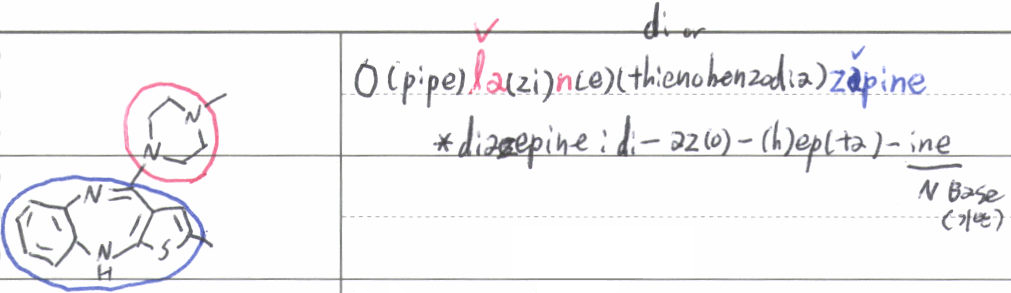 di or
O(pipe)la(zi)n(e)(thienobenzodia)zapine
*diazepine : di - az(o) - (h)ep(ta) - ine
N Base
(기반)
N
N
N
N
H
S